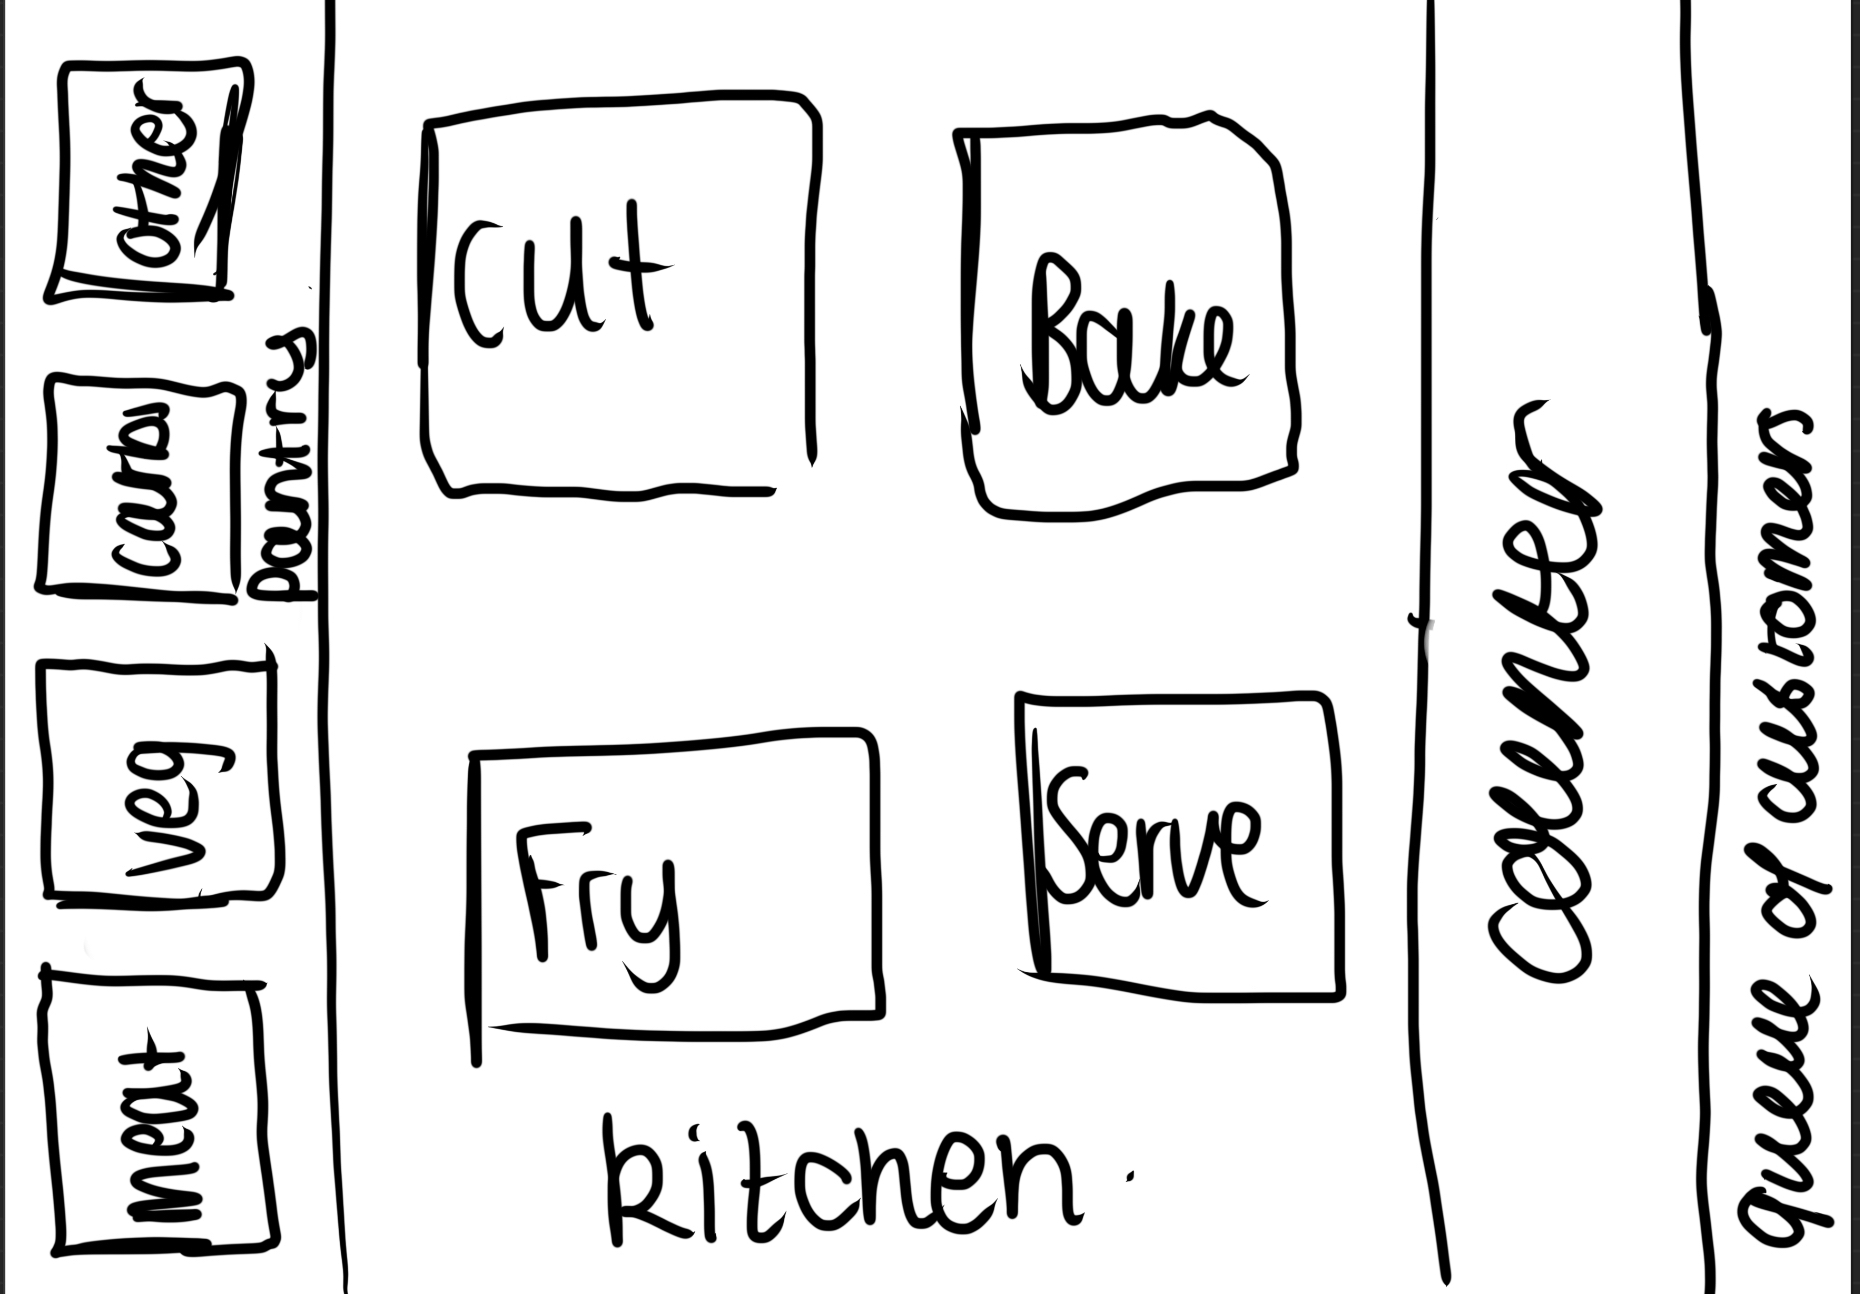 other
carbs
veg
meat
pantry
cut
Bake
Fry
Serve
kitchen.
counter
queue of customers